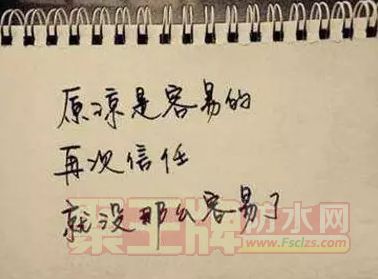 原谅是容易的
再次信任
就没那么容易了
聚王牌防水网
www.Fsclzs.com